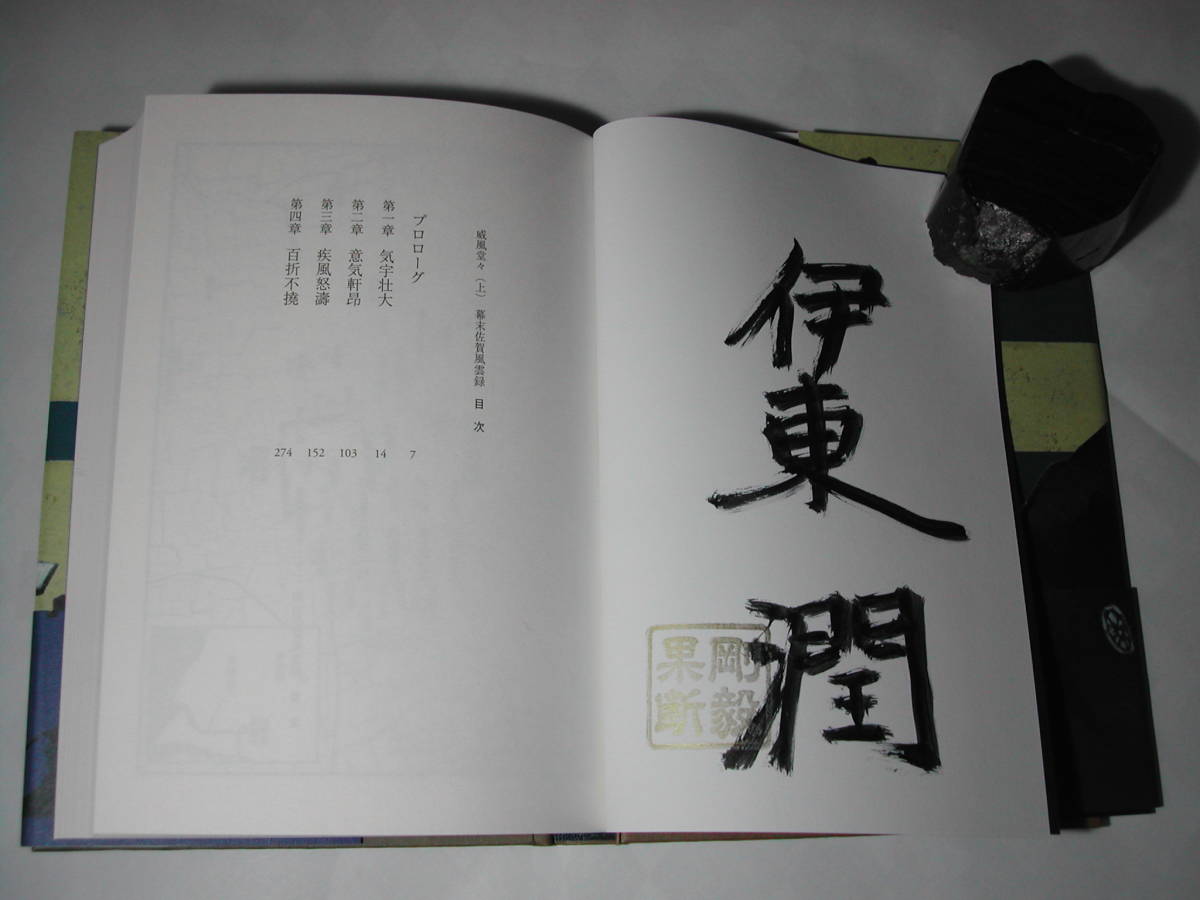 伊東
潤
剛毅
果断
威風堂々（上） 幕末佐賀風雲録 目次
プロローグ 7
第一章 気宇壮大 14
第二章 意気軒昂 103
第三章 疾風怒濤 152
第四章 百折不撓 274